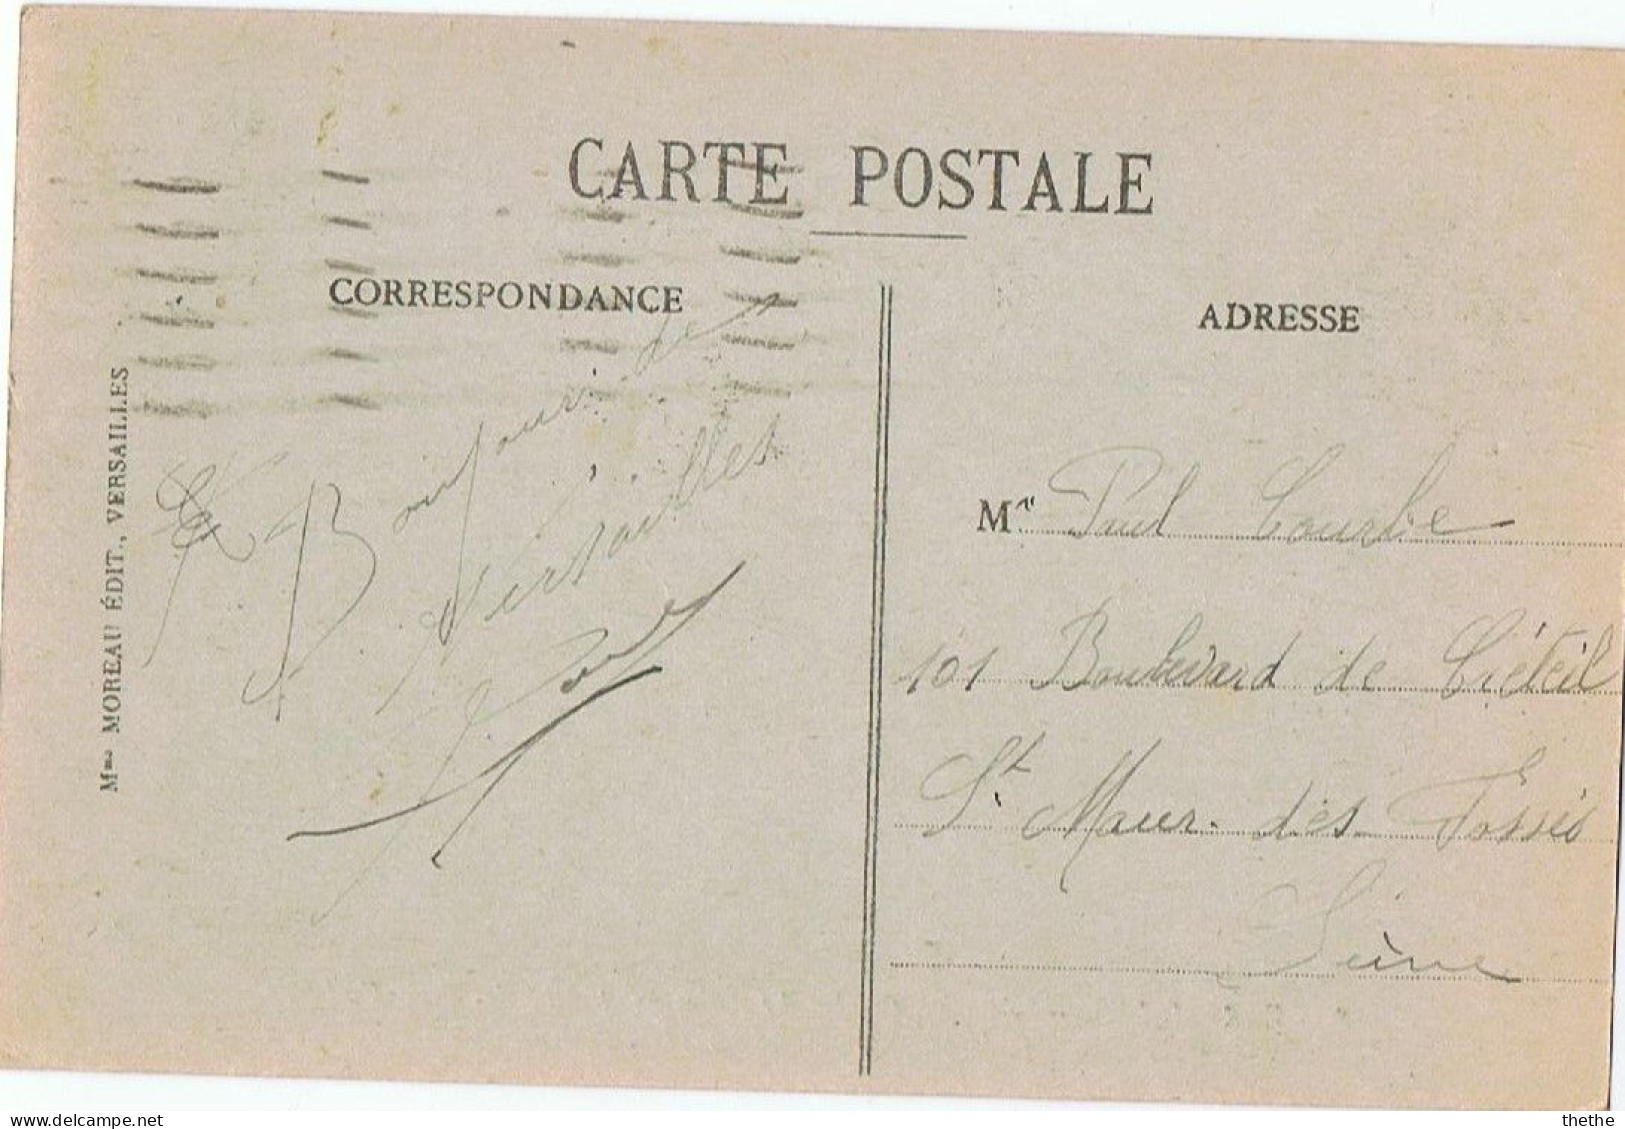 CARTE POSTALE
CORRESPONDANCE
ADRESSE
Mme MOREAU ÉDIT., VERSAILLES
Bonjour de
Versailles
Mr Paul Courbe
101 Boulevard de Créteil
St Maur-des Fossés
Seine
thethe